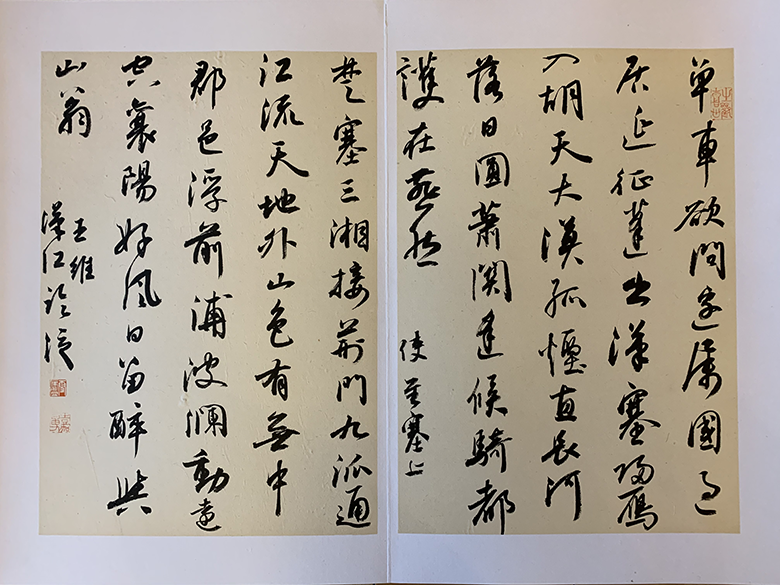 單車欲問邊屬國過
居延征蓬出漢塞歸雁
入胡天大漠孤煙直長河
落日圓蕭關逢候騎都
護在燕然
使至塞上
楚塞三湘接荊門九派通
江流天地外山色有無中
郡邑浮前浦波瀾動遠
空襄陽好風日留醉與
山翁
王維
漢江臨泛